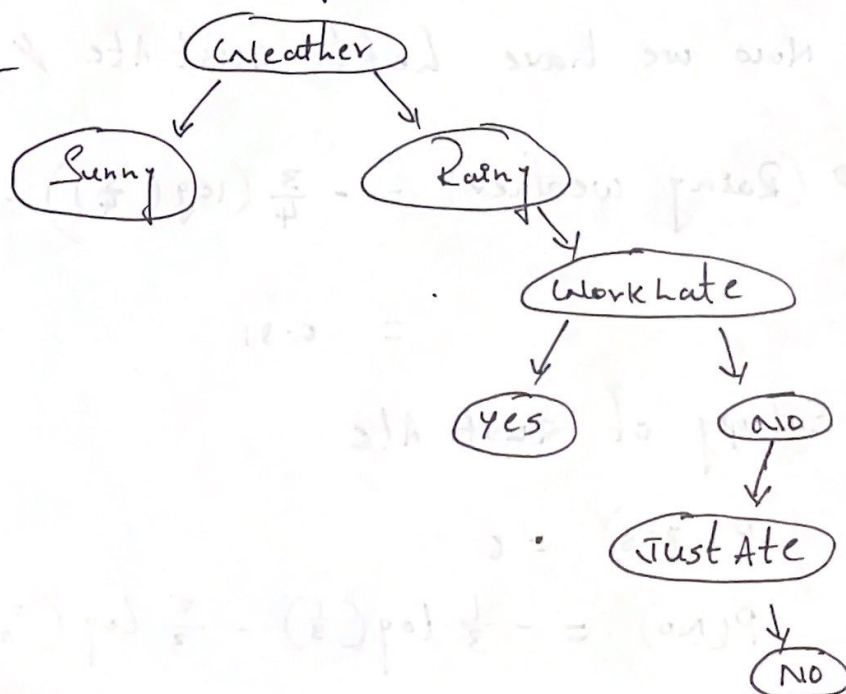 Weather
Sunny
Rainy
Work Late
Yes
No
Just Ate
No